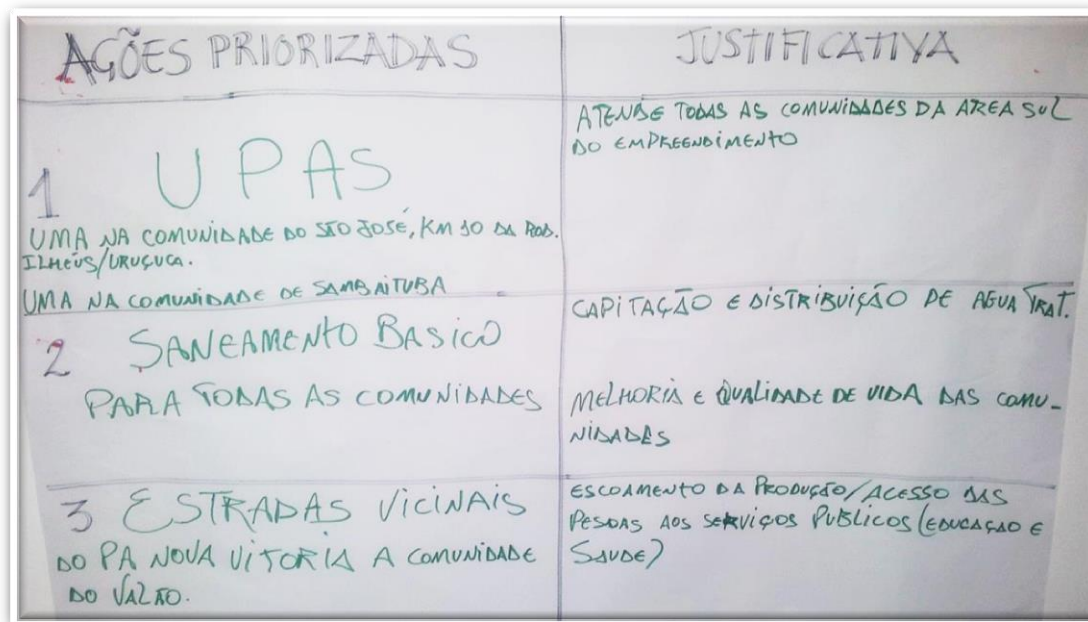 AÇÕES PRIORIZADAS
JUSTIFICATIVA
1 UPAS
UMA NA COMUNIDADE DO SÃO JOSÉ, KM 10 DA ROD.
ILHÉUS/URUÇUCA.
UMA NA COMUNIDADE DE SAMBAITUBA
ATENDE TODAS AS COMUNIDADES DA AREA SUL
DO EMPREENDIMENTO
2 SANEAMENTO BASICO
PARA TODAS AS COMUNIDADES
CAPITAÇÃO E DISTRIBUIÇÃO DE AGUA TRAT.
MELHORIA E QUALIDADE DE VIDA DAS COMU-
NIDADES
3 ESTRADAS VICINAIS
DO PA NOVA VITORIA A COMUNIDADE
DO VALÃO.
ESCOAMENTO DA PRODUÇÃO/ACESSO DAS
PESSOAS AOS SERVIÇOS PUBLICOS (EDUCAÇAO E
SAUDE)